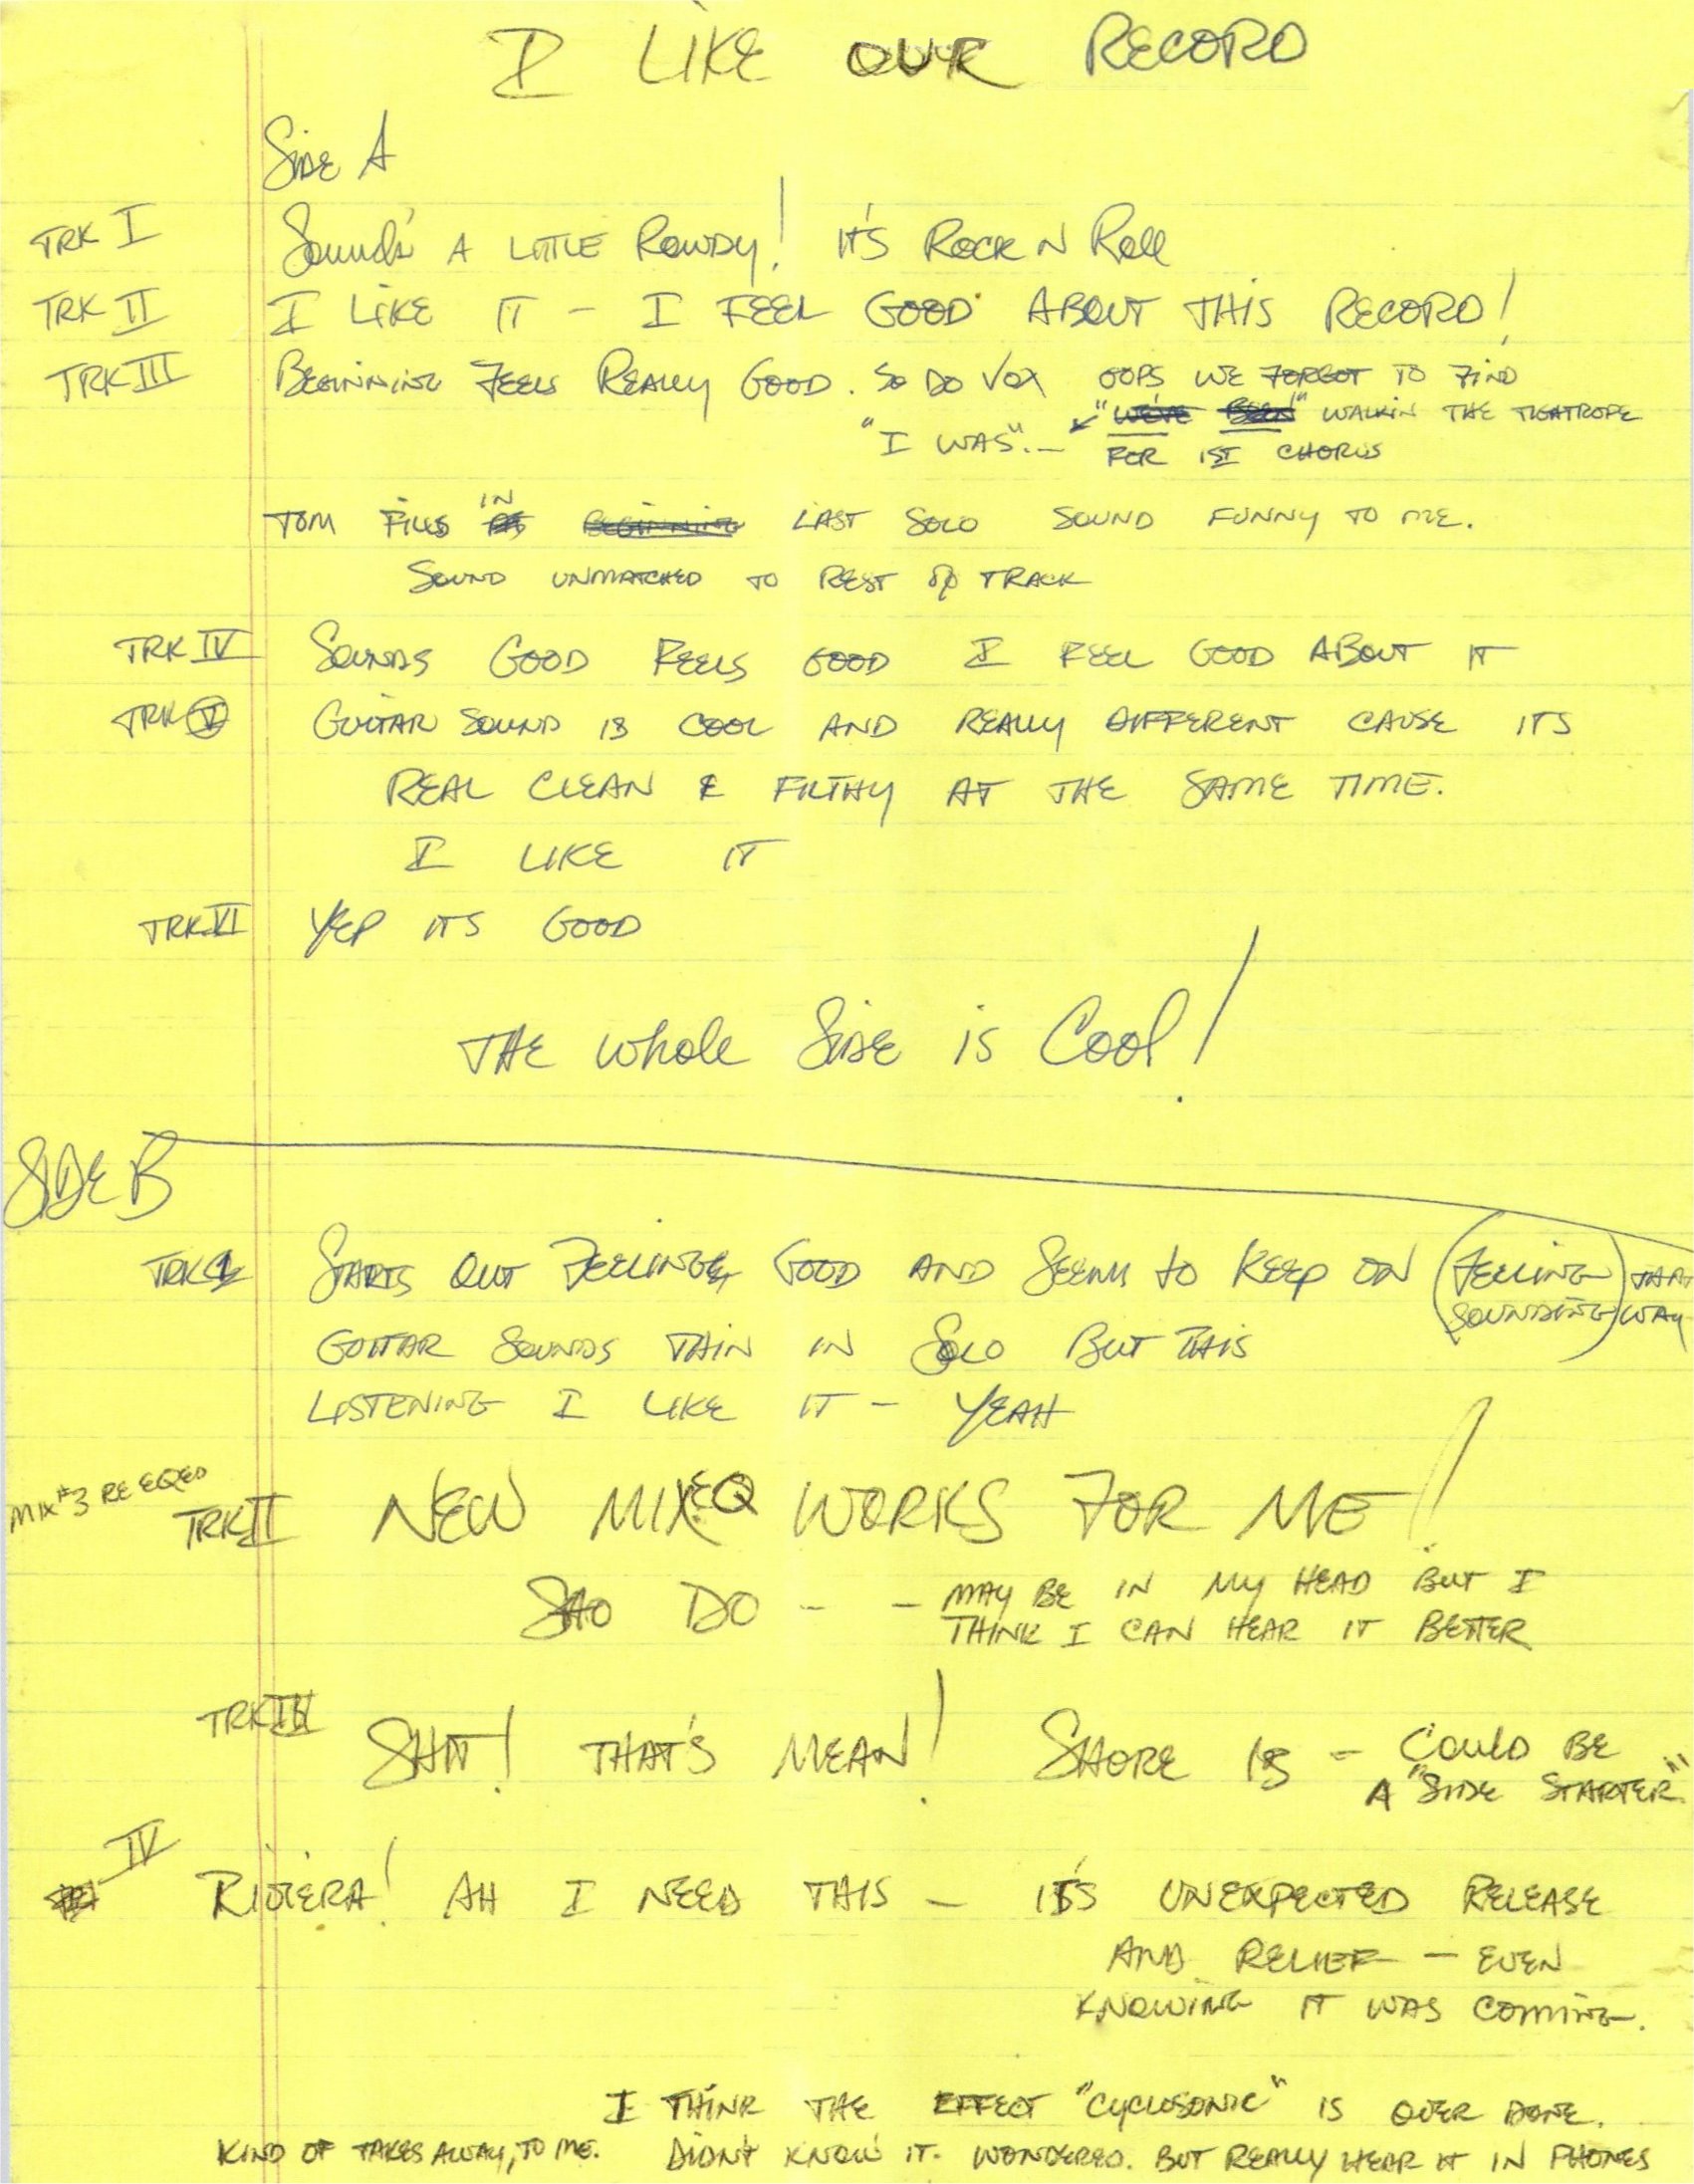 I LIKE OUR RECORD
SIDE A
TRK I Sounds A LITTLE ROWDY! IT'S ROCK N ROLL
TRK II I LIKE IT - I FEEL GOOD ABOUT THIS RECORD!
TRK III BEGINNING FEELS REALLY GOOD. SO DO VOX OOPS WE FORGOT TO FIND
"WE'VE BEEN" WALKIN THE TIGHTROPE
"I WAS".— FOR 1ST CHORUS
TOM FILLS IN BEGINNING LAST SOLO SOUND FUNNY TO ME.
SOUND UNMATCHED TO REST OF TRACK
TRK IV SOUNDS GOOD FEELS GOOD I FEEL GOOD ABOUT IT
TRK V GUITAR SOUND IS COOL AND REALLY DIFFERENT CAUSE ITS
REAL CLEAN & FILTHY AT THE SAME TIME.
I LIKE IT
TRK VI YEP ITS GOOD
THE whole SIDE is Cool!
SIDE B
TRK I STARTS OUT FEELING GOOD AND SEEMS to KEEP ON (FEELING SOUNDING) THAT WAY
GUITAR SOUNDS THIN IN SOLO BUT THIS
LISTENING I LIKE IT - YEAH
MIX #3 RE EQED
TRK II NEW MIX EQ WORKS FOR ME!
SHO DO - - MAY BE IN MY HEAD BUT I
THINK I CAN HEAR IT BETTER
TRK III SHIT! THAT'S MEAN! SHORE IS - COULD BE
A "SIDE STARTER"
IV RIVIERA! AH I NEED THIS - IT'S UNEXPECTED RELEASE
AND RELIEF - EVEN
KNOWING IT WAS COMING.
I THINK THE EFFECT "CYCLOSONIC" IS OVER DONE.
KIND OF TAKES AWAY, TO ME. DIDN'T KNOW IT. WONDERED. BUT REALLY HEAR IT IN PHONES